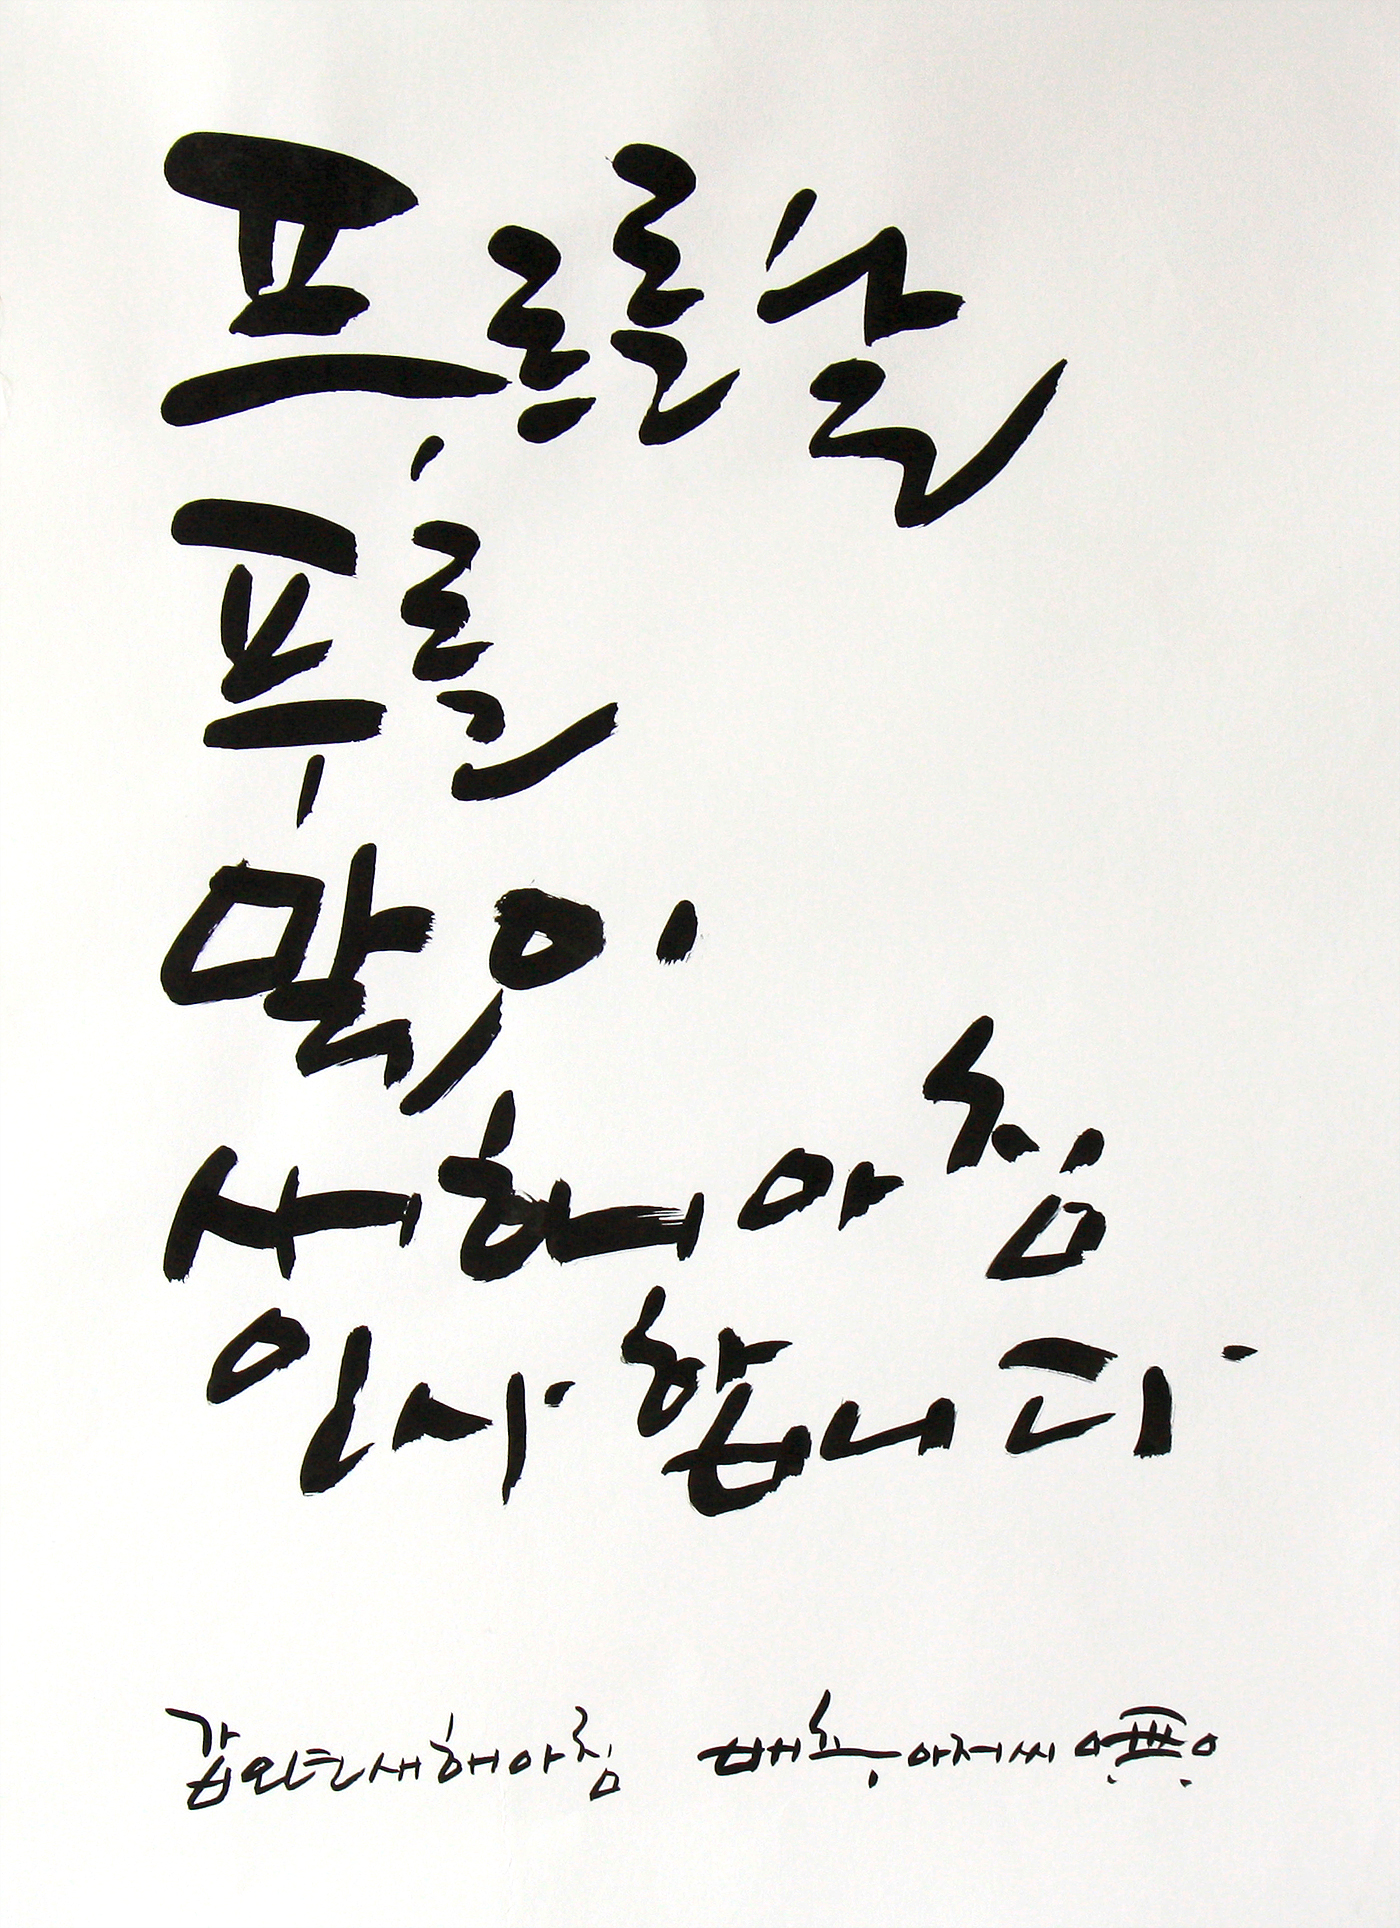 푸르른날
푸른
말이
새해아침
인사합니다.
갑오년새해아침 배추아저씨